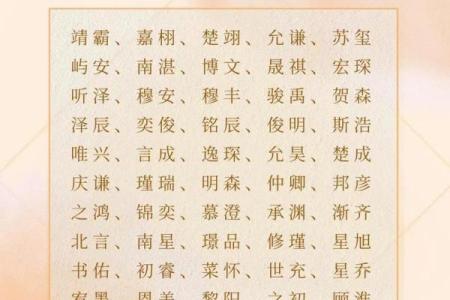 靖霸、嘉栩、楚翊、允谦、苏玺
屿安、南湛、博文、晟祺、宏琛
听泽、穆安、穆丰、骏禹、贺森
泽辰、奕俊、铭辰、俊明、斯浩
唯兴、言成、逸琛、允昊、楚成
庆谦、瑾瑞、明森、仲卿、邦彦
之鸿、锦奕、慕澄、承渊、渐齐
北言、南星、璟品、修瑾、星旭
书佑、初睿、菜怀、世充、星乔